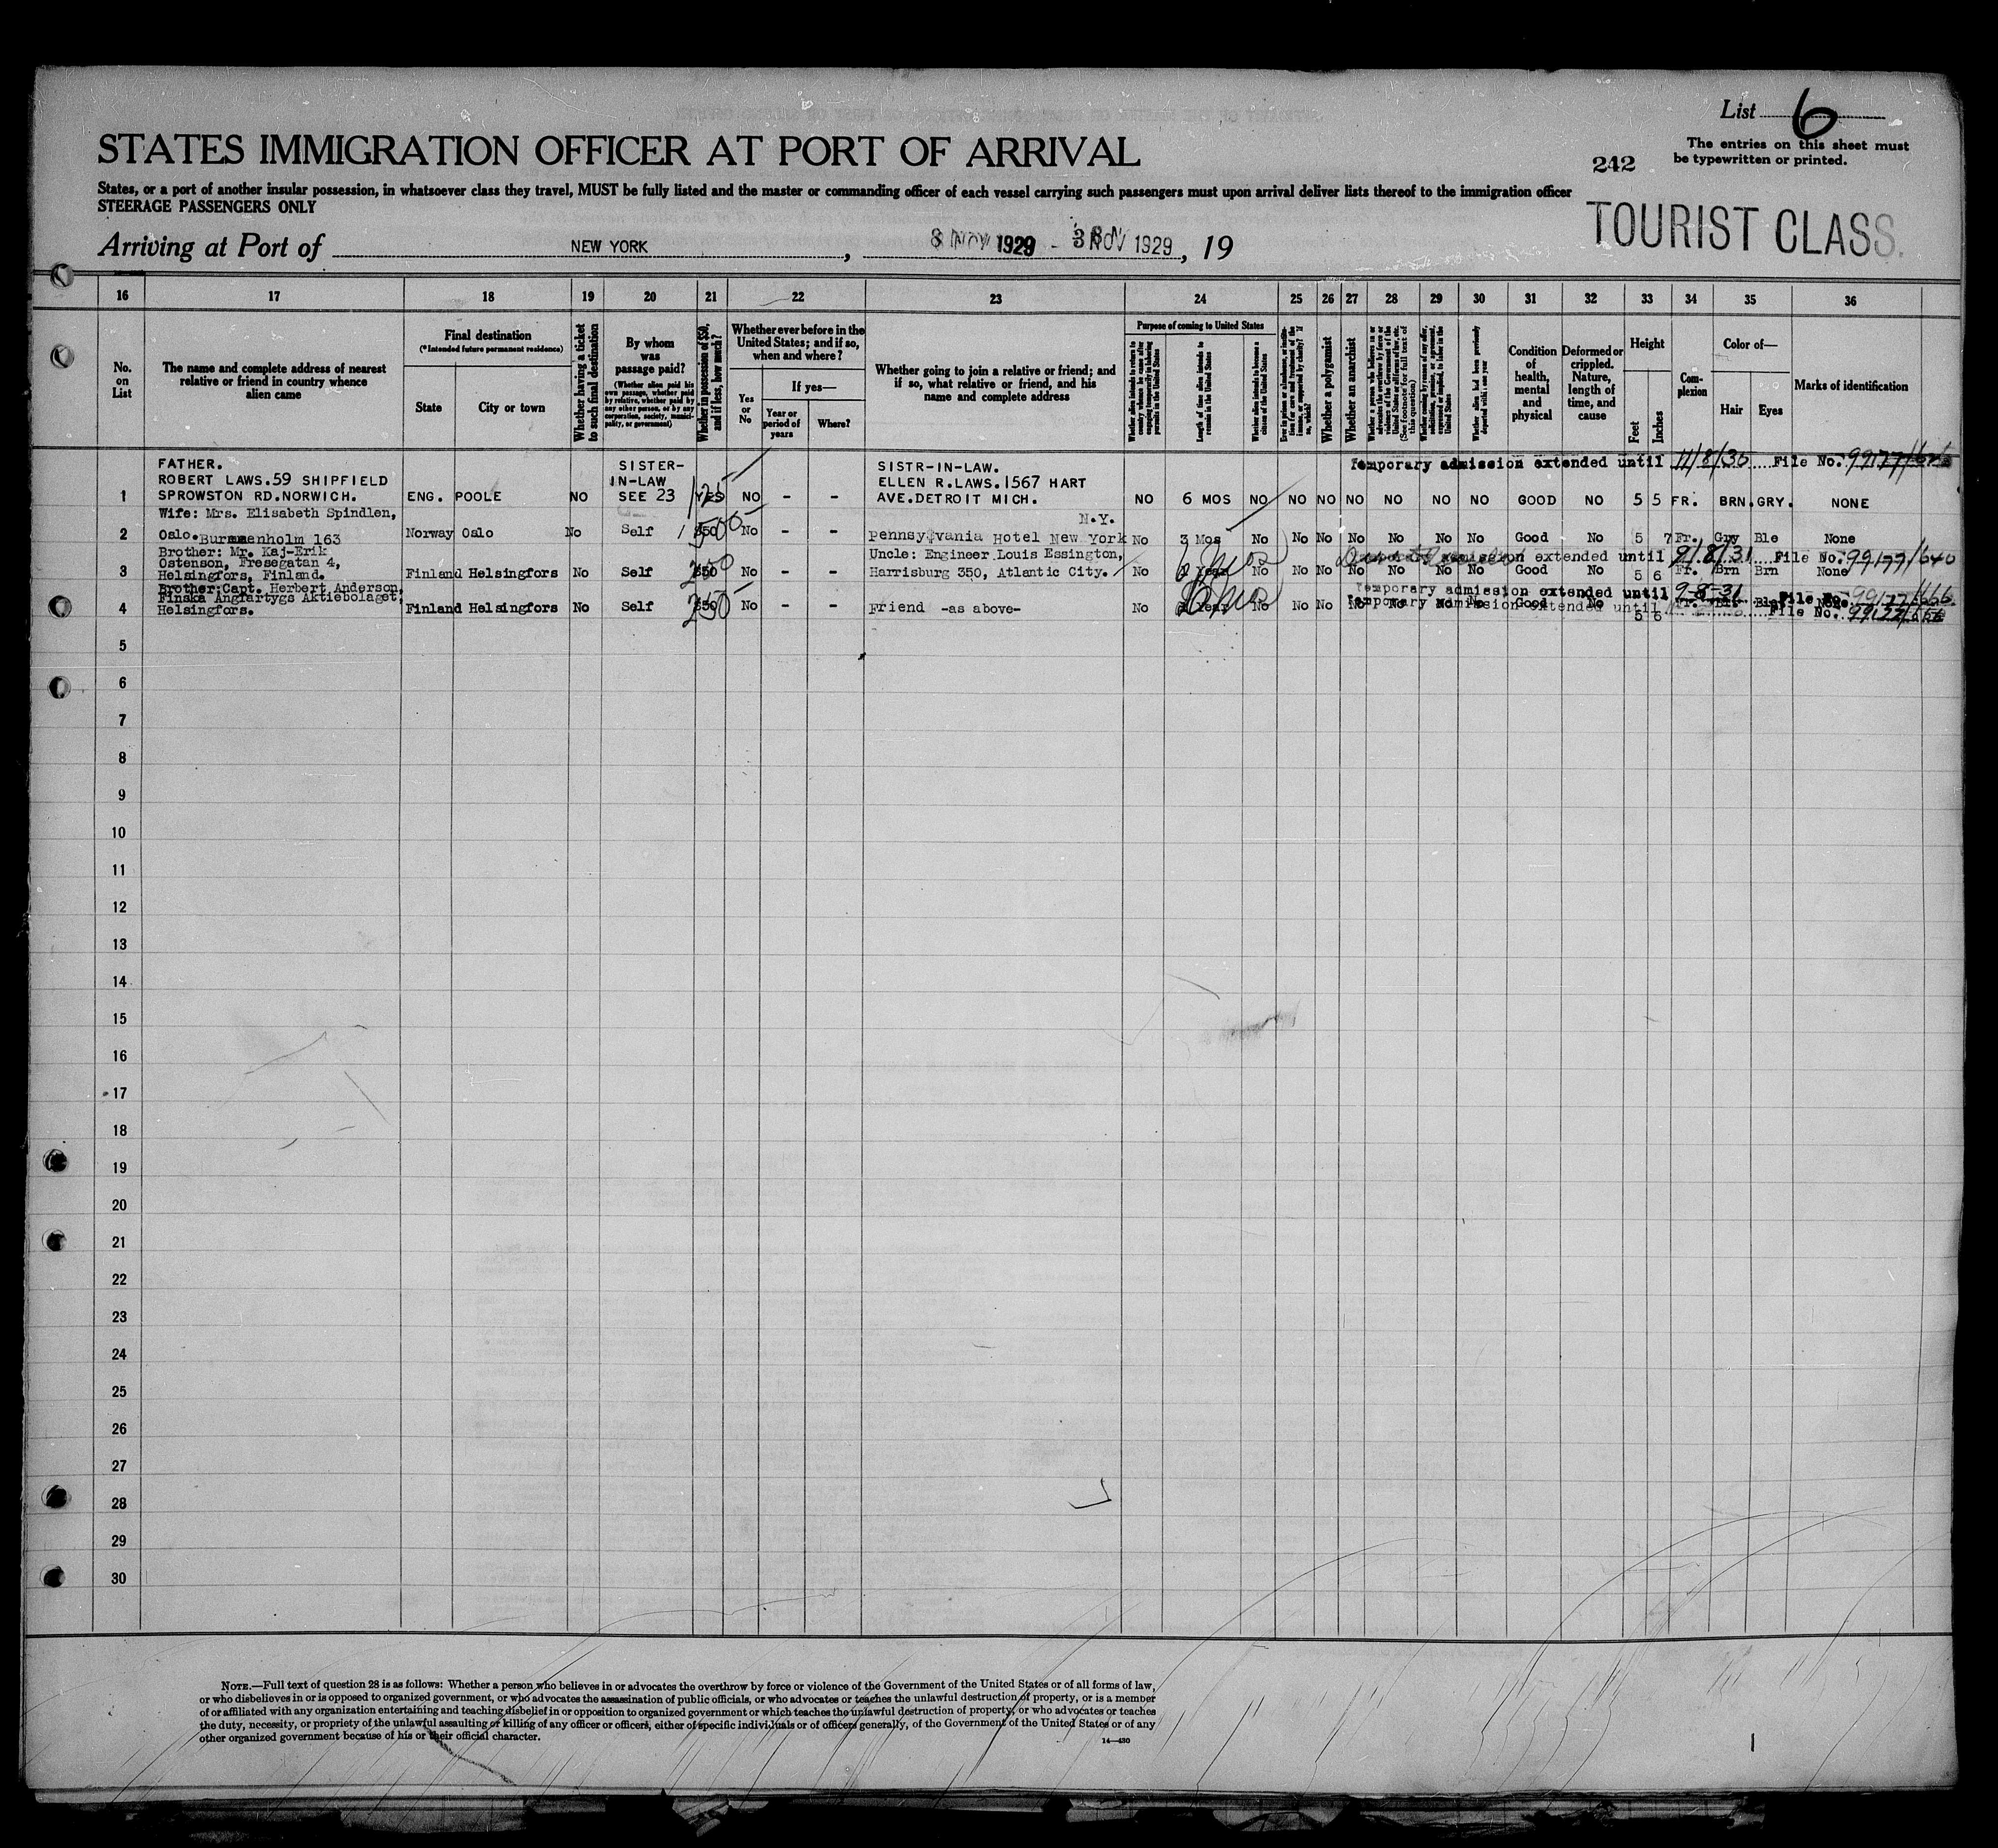 List 6
The entries on this sheet must
be typewritten or printed.
242
STATES IMMIGRATION OFFICER AT PORT OF ARRIVAL
States, or a port of another insular possession, in whatsoever class they travel, MUST be fully listed and the master or commanding officer of each vessel carrying such passengers must upon arrival deliver lists thereof to the immigration officer
STEERAGE PASSENGERS ONLY
TOURIST CLASS.
Arriving at Port of NEW YORK, 8 NOV 1929 - NOV 1929, 19
16 17 18 19 20 21 22 23 24 25 26 27 28 29 30 31 32 33 34 35 36
No. on List
The name and complete address of nearest
relative or friend in country whence
alien came
Final destination
(*Intended future permanent residence)
State
City or town
Whether having a ticket
to such final destination
By whom
was
passage paid?
(Whether alien paid his
own passage, whether paid
by relative, whether paid by
any other person, or by any
corporation, society, munici-
pality, or government)
Whether in possession of $50,
and if less, how much?
Whether ever before in the
United States; and if so,
when and where?
Yes or No
If yes—
Year or
period of
years
Where?
Whether going to join a relative or friend; and
if so, what relative or friend, and his
name and complete address
Purpose of coming to United States
Length of time alien intends to
remain in the United States
Whether alien intends to become a
citizen of the United States
Whether a polygamist
Whether an anarchist
(See footnote for full text of
this question)
Condition
of
health,
mental
and
physical
Deformed or
crippled.
Nature,
length of
time, and
cause
Height
Feet
Inches
Com-
plexion
Color of—
Hair
Eyes
Marks of identification
Temporary admission extended until 11/8/30 File No. 99177/
FATHER.
ROBERT LAWS.59 SHIPFIELD
SPROWSTON RD.NORWICH.
1 ENG. POOLE NO SISTER-
IN-LAW
SEE 23 YES NO - -
SISTR-IN-LAW.
ELLEN R.LAWS.1567 HART
AVE.DETROIT MICH.
NO 6 MOS NO NO NO NO NO NO NO GOOD NO 5 5 FR. BRN. GRY. NONE
Wife: Mrs. Elisabeth Spindlen,
2 Oslo. 163 Norway Oslo No Self $50 500 No - -
N.Y.
Hotel New York No 3 Mos No No No No No No No Good No 5 7 Fr. Gry Ble None
Brother: Mr. Kaj-Erik
Ostenson, Fresegatan 4,
Helsingfors, Finland.
3 Finland Helsingfors No Self $50 No - -
Uncle: Engineer Louis Essington,
Harrisburg 350, Atlantic City.
No Year 6 Mos No No No No No No No Good No 5 6 Fr. Brn Brn None
admission extended until 9/8/31 File No. 99177/640
Brother:Capt. Herbert Anderson,
Finska Angfartygs Aktiebolaget,
Helsingfors.
4 Finland Helsingfors No Self $50 250 No - -
Friend -as above-
No Year 6 Mos No No No No No No No Good No 5 6 Fr. Ble None
Temporary admission extended until 9-8-31 File No. 99177/666
Temporary admission extended until File No.
5
6
7
8
9
10
11
12
13
14
15
16
17
18
19
20
21
22
23
24
25
26
27
28
29
30
NOTE.—Full text of question 28 is as follows: Whether a person who believes in or advocates the overthrow by force or violence of the Government of the United States or of all forms of law,
or who disbelieves in or is opposed to organized government, or who advocates the assassination of public officials, or who advocates or teaches the unlawful destruction of property, or is a member
of or affiliated with any organization entertaining and teaching disbelief in or opposition to organized government or which teaches the unlawful destruction of property, or who advocates or teaches
the duty, necessity, or propriety of the unlawful assaulting or killing of any officer or officers, either of specific individuals or of officers generally, of the Government of the United States or of any
other organized government because of his or their official character.
14—430